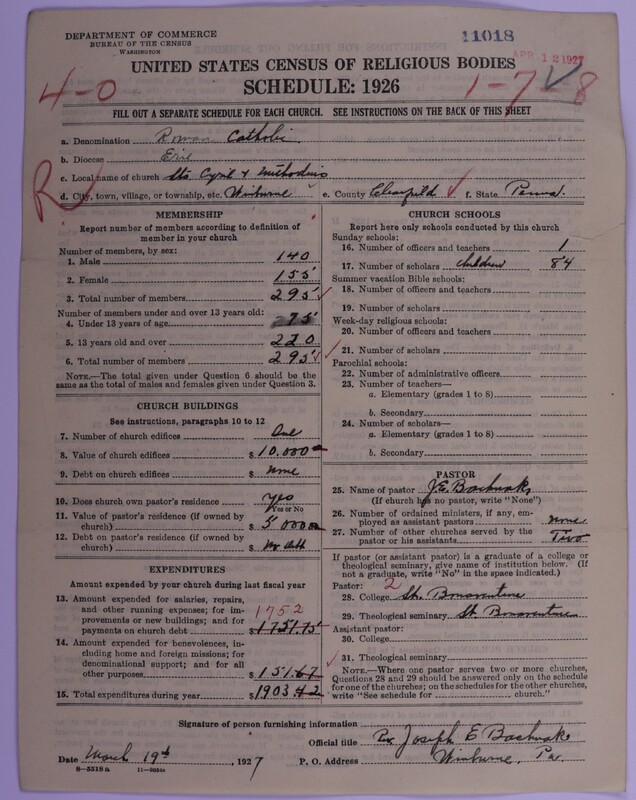 DEPARTMENT OF COMMERCE
BUREAU OF THE CENSUS
WASHINGTON
11018
APR 12 1927
UNITED STATES CENSUS OF RELIGIOUS BODIES
SCHEDULE: 1926
4-0
1-7 8
FILL OUT A SEPARATE SCHEDULE FOR EACH CHURCH. SEE INSTRUCTIONS ON THE BACK OF THIS SHEET
R
a. Denomination Roman Catholic
b. Diocese Erie
c. Local name of church Sts Cyril & Methodius
d. City, town, village, or township, etc. Winburne e. County Clearfield f. State Penna.
MEMBERSHIP
Report number of members according to definition of
member in your church
Number of members, by sex:
1. Male 140
2. Female 155
3. Total number of members 295
Number of members under and over 13 years old:
4. Under 13 years of age 75
5. 13 years old and over 220
6. Total number of members 295
NOTE.—The total given under Question 6 should be
same as the total of males and females given under Question 3.
CHURCH BUILDINGS
See instructions, paragraphs 10 to 12
7. Number of church edifices One
8. Value of church edifices $ 10,000
9. Debt on church edifices $ none
10. Does church own pastor's residence yes
(Yes or No)
11. Value of pastor's residence (if owned by
church) $ 5000
12. Debt on pastor's residence (if owned by
church) $ no debt
EXPENDITURES
Amount expended by your church during last fiscal year
13. Amount expended for salaries, repairs,
and other running expenses; for im-
provements or new buildings; and for
payments on church debt 1752 $ 1751.75
14. Amount expended for benevolences, in-
cluding home and foreign missions; for
denominational support; and for all
other purposes $ 151.67
15. Total expenditures during year $ 1903.42
CHURCH SCHOOLS
Report here only schools conducted by this church
Sunday schools:
16. Number of officers and teachers 1
17. Number of scholars children 84
Summer vacation Bible schools:
18. Number of officers and teachers
19. Number of scholars
Week-day religious schools:
20. Number of officers and teachers
21. Number of scholars
Parochial schools:
22. Number of administrative officers
23. Number of teachers—
a. Elementary (grades 1 to 8)
b. Secondary
24. Number of scholars—
a. Elementary (grades 1 to 8)
b. Secondary
PASTOR
25. Name of pastor J.E. Bachnak
(If church has no pastor, write "None")
26. Number of ordained ministers, if any, em-
ployed as assistant pastors none
27. Number of other churches served by the
pastor or his assistants Two
If pastor (or assistant pastor) is a graduate of a college or
theological seminary, give name of institution below. (If
not a graduate, write "No" in the space indicated.)
Pastor: 2
28. College St. Bonaventure
29. Theological seminary St. Bonaventure
Assistant pastor:
30. College
31. Theological seminary
NOTE.—Where one pastor serves two or more churches,
Questions 28 and 29 should be answered only on the schedule
for one of the churches; on the schedules for the other churches,
write "See schedule for church."
Signature of person furnishing information
Official title Rev Joseph E Bachnak
Date March 19th, 1927 P. O. Address Winburne, Pa.
8—5518a 11—9656a